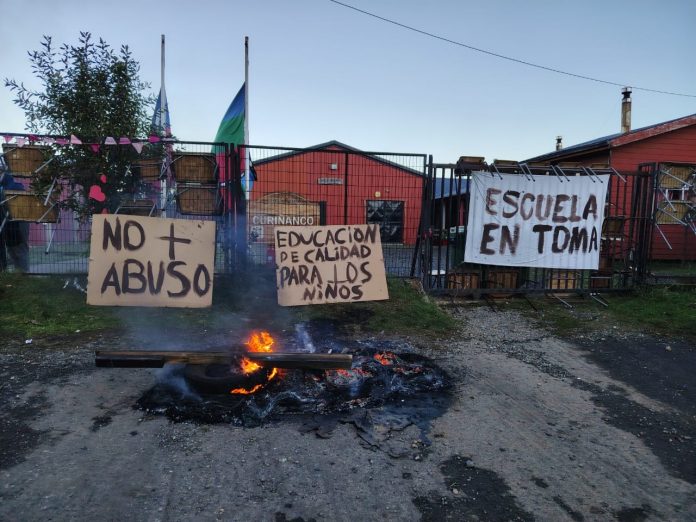 NO +
ABUSO
CURIÑANCO
EDUCACION
DE CALIDAD
PARA LOS
NIÑOS
ESCUELA
EN TOMA